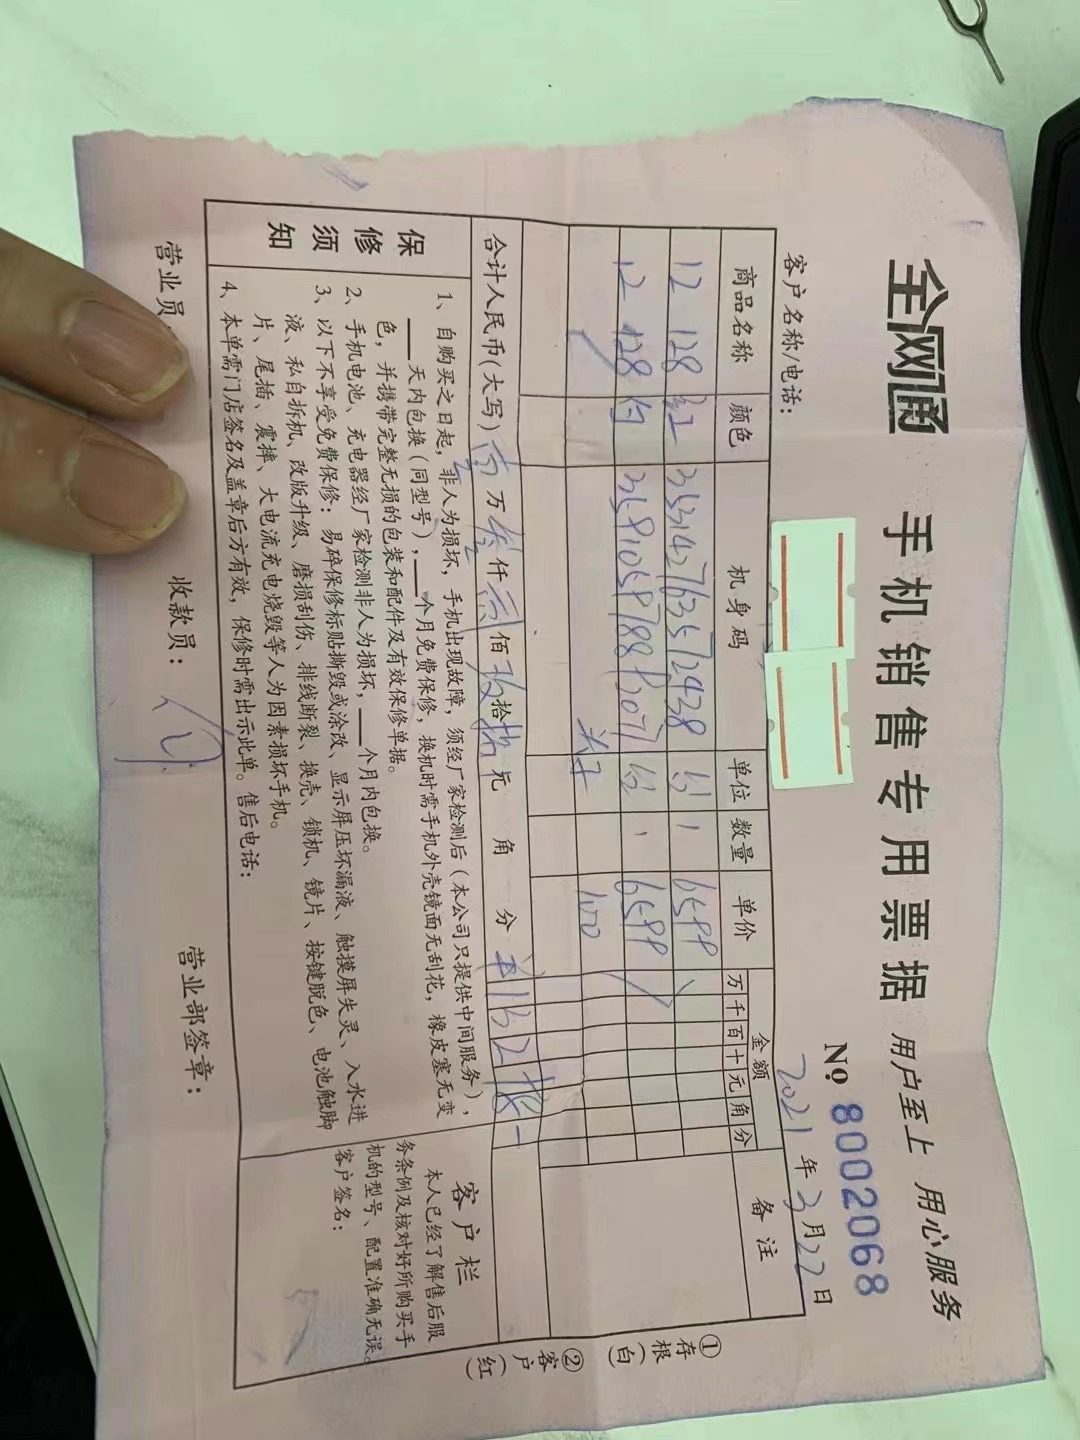 全网通 手机销售专用票据 用户至上 用心服务
№ 8002068
客户名称/电话： 2021年3月22日
商品名称 颜色 机身码 单位 数量 单价 金额 备注
万 千 百 十 元 角 分
12 128 红 353427635712438 台 1 6599
12 128 白 台 1 6599
100
合计人民币(大写) 万 仟 佰 拾 元 角 分
保修须知
1、自购买之日起，非人为损坏，手机出现故障，须经厂家检测后（本公司只提供中间服务），
天内包换（同型号），个月免费保修，换机时需手机外壳镜面无刮花，橡皮塞无变
色，并携带完整无损的包装和配件及有效保修单据。
2、手机电池、充电器经厂家检测非人为损坏，个月内包换。
3、以下不享受免费保修：易碎保修标贴撕毁或涂改、显示屏压坏漏液、触摸屏失灵、入水进
液、私自拆机、改版升级、磨损刮伤、排线断裂、换壳、锁机、镜片、按键脱色、电池触脚
片、尾插、震摔、大电流充电烧毁等人为因素损坏手机。
4、本单需门店签名及盖章后方有效，保修时需出示此单。售后电话：
客户栏
本人已经了解售后服
务条例及核对好所购买手
机的型号、配置准确无误。
客户签名：
营业员 收款员： 营业部签章：
①存根（白）
②客户（红）